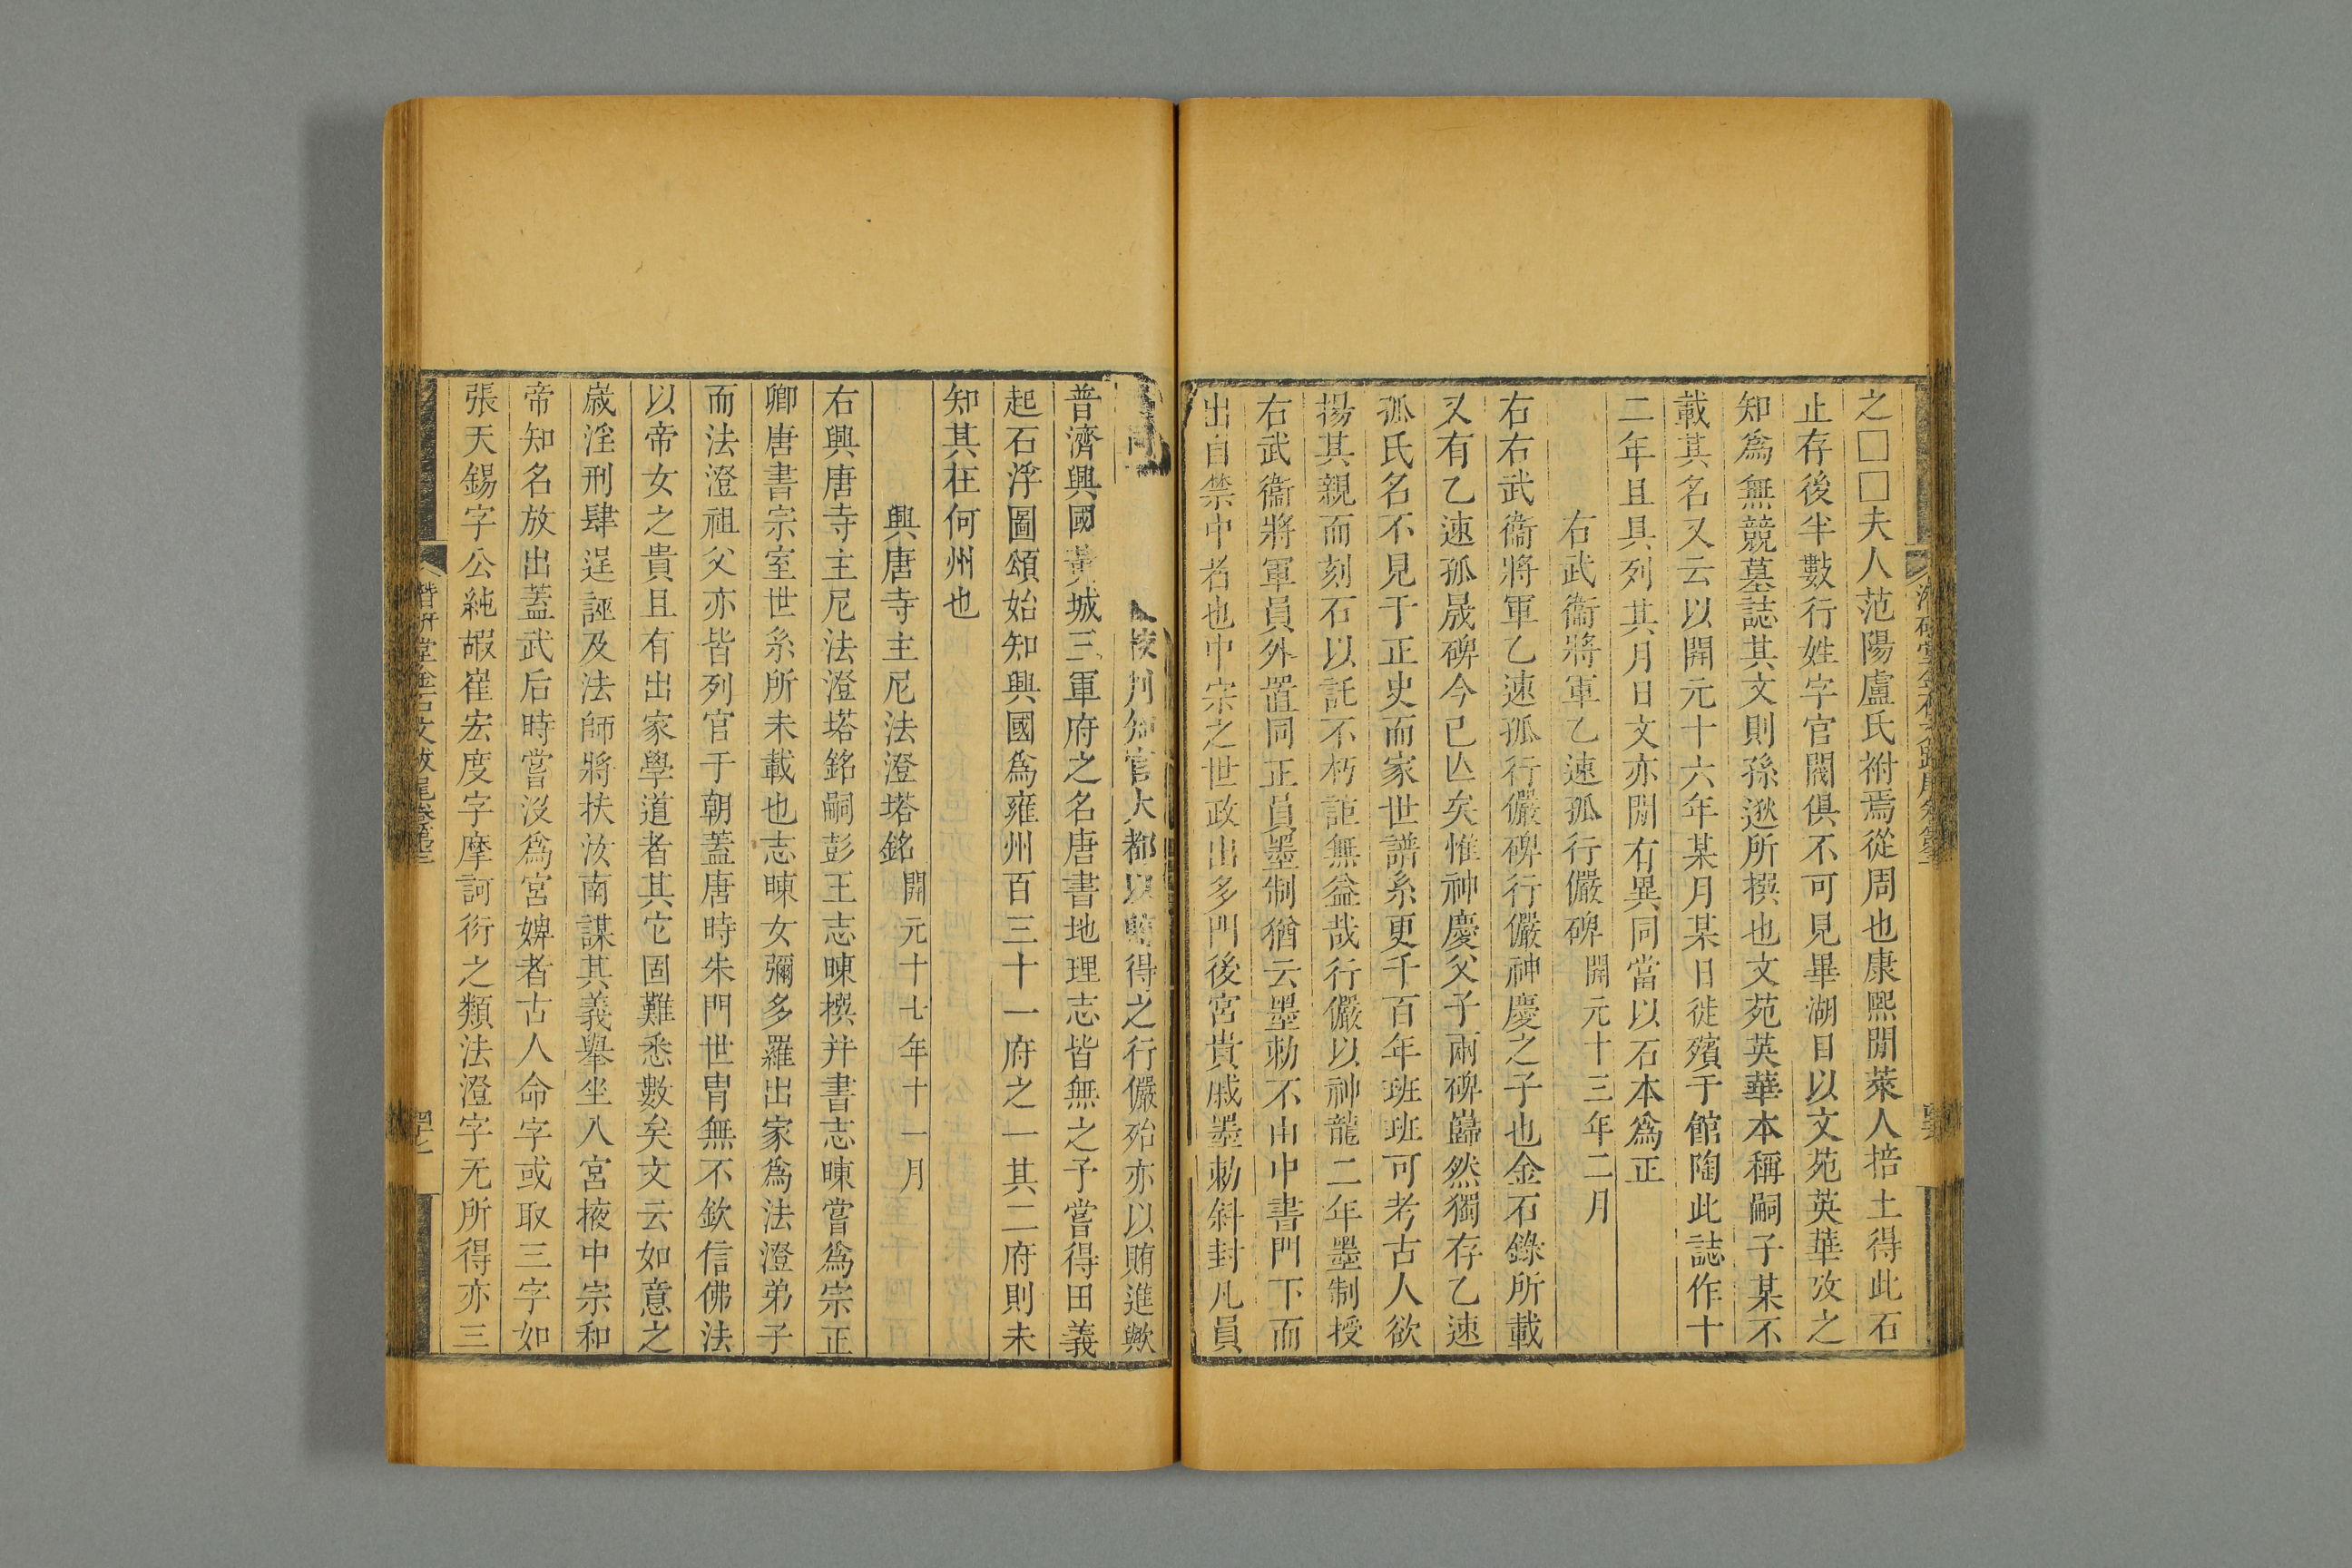 之□□夫人范陽盧氏祔焉從周也康熙閒萊人掊土得此石
止存後半數行姓字官閥俱不可見畢湖目以文苑英華攷之
知爲無競墓誌其文則孫逖所撰也文苑英華本稱嗣子某不
載其名又云以開元十六年某月某日徙殯于館陶此誌作十
二年且具列其月日文亦閒有異同當以石本爲正
右武衞將軍乙速孤行儼碑 開元十三年二月
右右武衞將軍乙速孤行儼碑行儼神慶之子也金石錄所載
又有乙速孤晟碑今已亾矣惟神慶父子兩碑巋然獨存乙速
孤氏名不見于正史而家世譜系更千百年班班可考古人欲
揚其親而刻石以託不朽詎無益哉行儼以神龍二年墨制授
右武衞將軍員外置同正員墨制猶云墨勅不由中書門下而
出自禁中者也中宗之世政出多門後宮貴戚墨勅斜封凡員
得之行儼殆亦以賄進歟
普濟興國黃城三軍府之名唐書地理志皆無之予嘗得田義
起石浮圖頌始知興國爲雍州百三十一府之一其二府則未
知其在何州也
興唐寺主尼法澄塔銘 開元十七年十一月
右興唐寺主尼法澄塔銘嗣彭王志暕撰并書志暕嘗爲宗正
卿唐書宗室世系所未載也志暕女彌多羅出家爲法澄弟子
而法澄祖父亦皆列官于朝蓋唐時朱門世冑無不欽信佛法
以帝女之貴且有出家學道者其它固難悉數矣文云如意之
嵗淫刑肆逞誣及法師將扶汝南謀其義舉坐入宮掖中宗和
帝知名放出蓋武后時嘗沒爲宮婢者古人命字或取三字如
張天錫字公純嘏崔宏度字摩訶衍之類法澄字无所得亦三